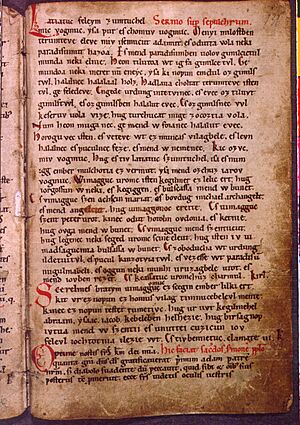 Latiatuc feleym zumtuchel Sermo sup sepulchrum.
mic vogmuc. ysa pur es chomuv uogmuc. Menyi milostben
terumteve eleve miv isemucut adamut. es odutta vola neki
paradisumut hazoa. Es mend paradisumben uolov gimilcictul
munda neki elnie. Heon tilutoa wt ig fa gimilce tvl. Ge
mundoa neki meret nu eneyc. ysa ki nopun emdul oz gimils
twl. halalnec halalaal holz. Hadlaua choltat terumteve isten
tvl. ge feledeve. Engede urdung intetvinec. es evec oz tiluvt
gimilstwl. es oz gimilsben halalut evec. Es oz gimilsnec vvl
keseruv uola vize. hug turchucat mige zocoztia vola.
Num heon muga nec. ge mend w foianec halalut evec.
Horoguvec isten. es veteve wt ez muncas vilagbele. es levn
halalnec es poculnec feze. es mend w nemenec. Kic ozvc.
miv vogmuc. Hug es tiv latiatuv szumtuchel. isa es num
igg ember mulchotia ez vermut. ysa mend ozchuz iarov
vogmuc. Wimagguc uromc isten kegilmet ez lelic ert. hug
iorgossun w neki. es kegiggen. es bulsassa mend w bunet.
Es vimagguc szen achscin mariat. es bovdug michael archangelt.
es mend angelcut. hug uimaggonoc erette. Es uimagguc
szent peter urot. kinec odut hotolm ovdonia. es ketnie.
hug ovga mend w bunet. Es vimagguc mend szentucut.
hug legenec neki seged uromc scine eleut. hug isten iv ui
madsagucmia bulsassa w bunet. Es zoboducha wt urdung
ildetuitvl. es pucul kinzotviatwl. es vezesse wt paradisum
nugulmabeli. es oggun neki munhi uruzagbele utot. es
mend iovben rezet. Es keassatuc uromchuz charmul. Kirl.
Scerelmes bratym uimagomuc ez scegin ember lilki ert.
kit vr ez nopun ez homus vilag timnucebelevl mente.
kinec ez nopun testet tumetivc. hug ur uvt kegilmehel
abraam. ysaac. iacob. kebeleben helhezie. hug birsagnop
ivtva mend w szentii es unuttei cuzicun iov
felevl iochtotnia ilezie wt. Es tivbennetuc. clamate iii. K.